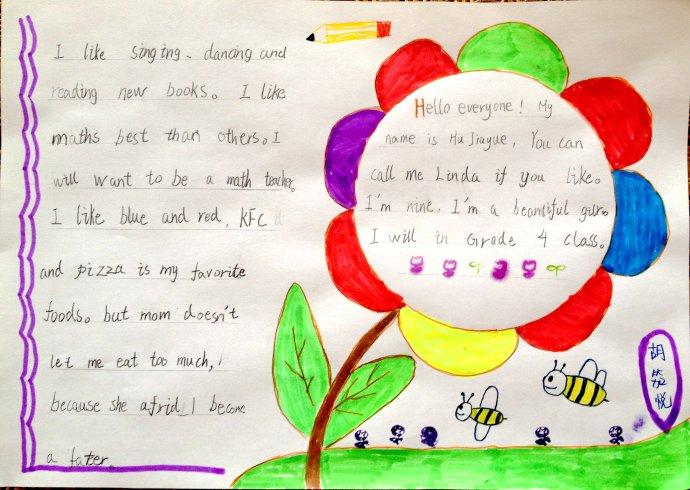 I like singing、dancing and
reading new books。I like
maths best than others。I
will want to be a math teacher.
I like blue and red, KFC
and pizza is my favorite
foods。but mom doesn't
let me eat too much,
because she afrid I become
a fater.
Hello everyone! My
name is Hu Jiayue, You can
call me Linda if you like。
I'm nine, I'm a beautiful gilr。
I will in Grade 4 class。
胡
悦